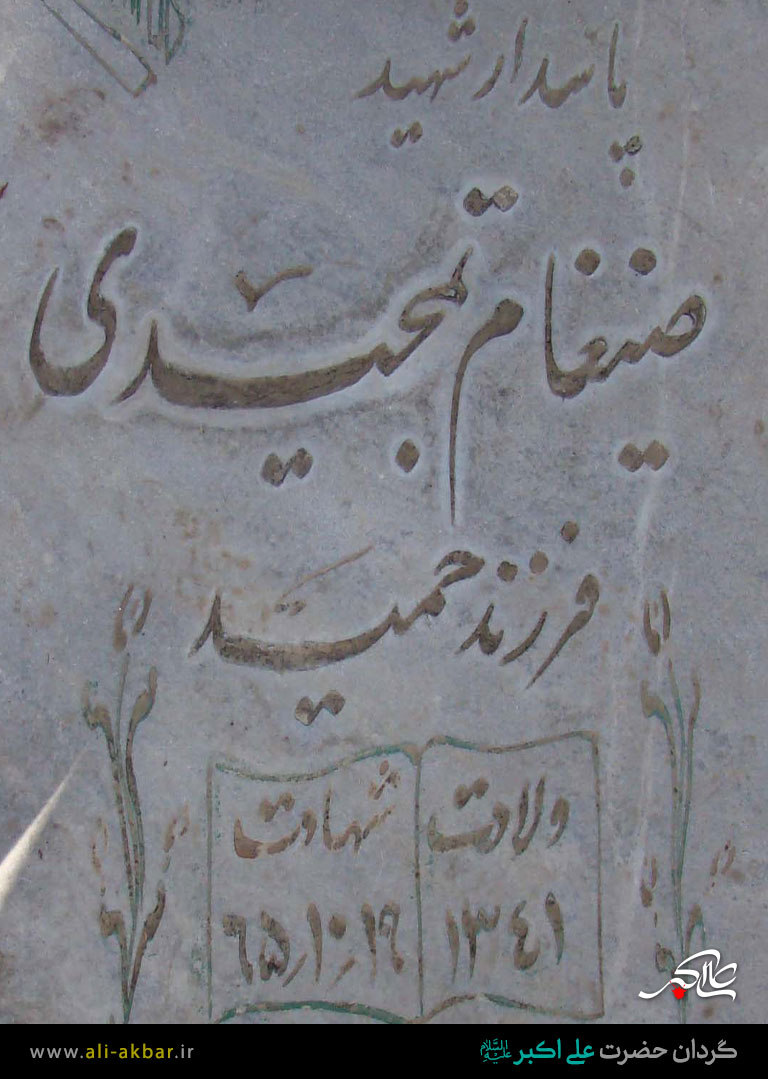 پاسدار شهید
ضیغام تمجیدی
فرزند حمید
ولادت
شهادت
۱۳۴۱
۶۵٫۱۰٫۱۹
علی اکبر
گردان حضرت علی اکبر علیه السلام
www.ali-akbar.ir